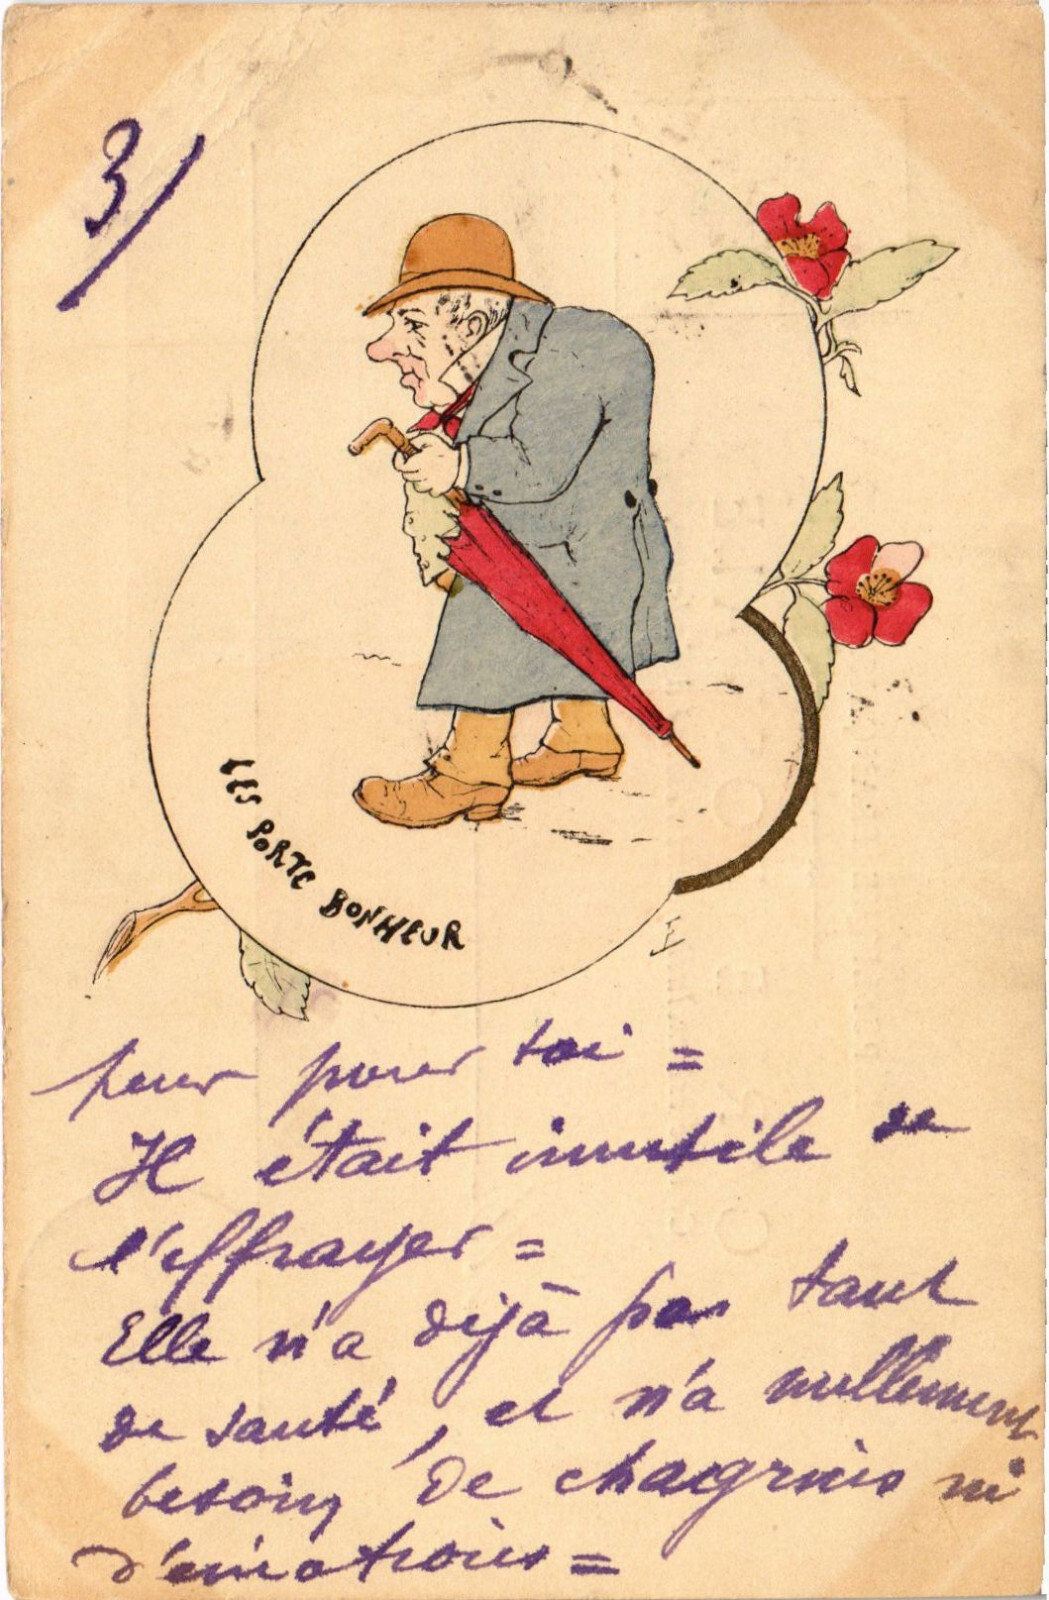 3/
LES PORTE BONHEUR
peur pour toi =
Il était inutile de
l'effrayer =
Elle n'a déjà pas tant
de santé, et n'a nullement
besoin de chagrins ni
d'émotions =